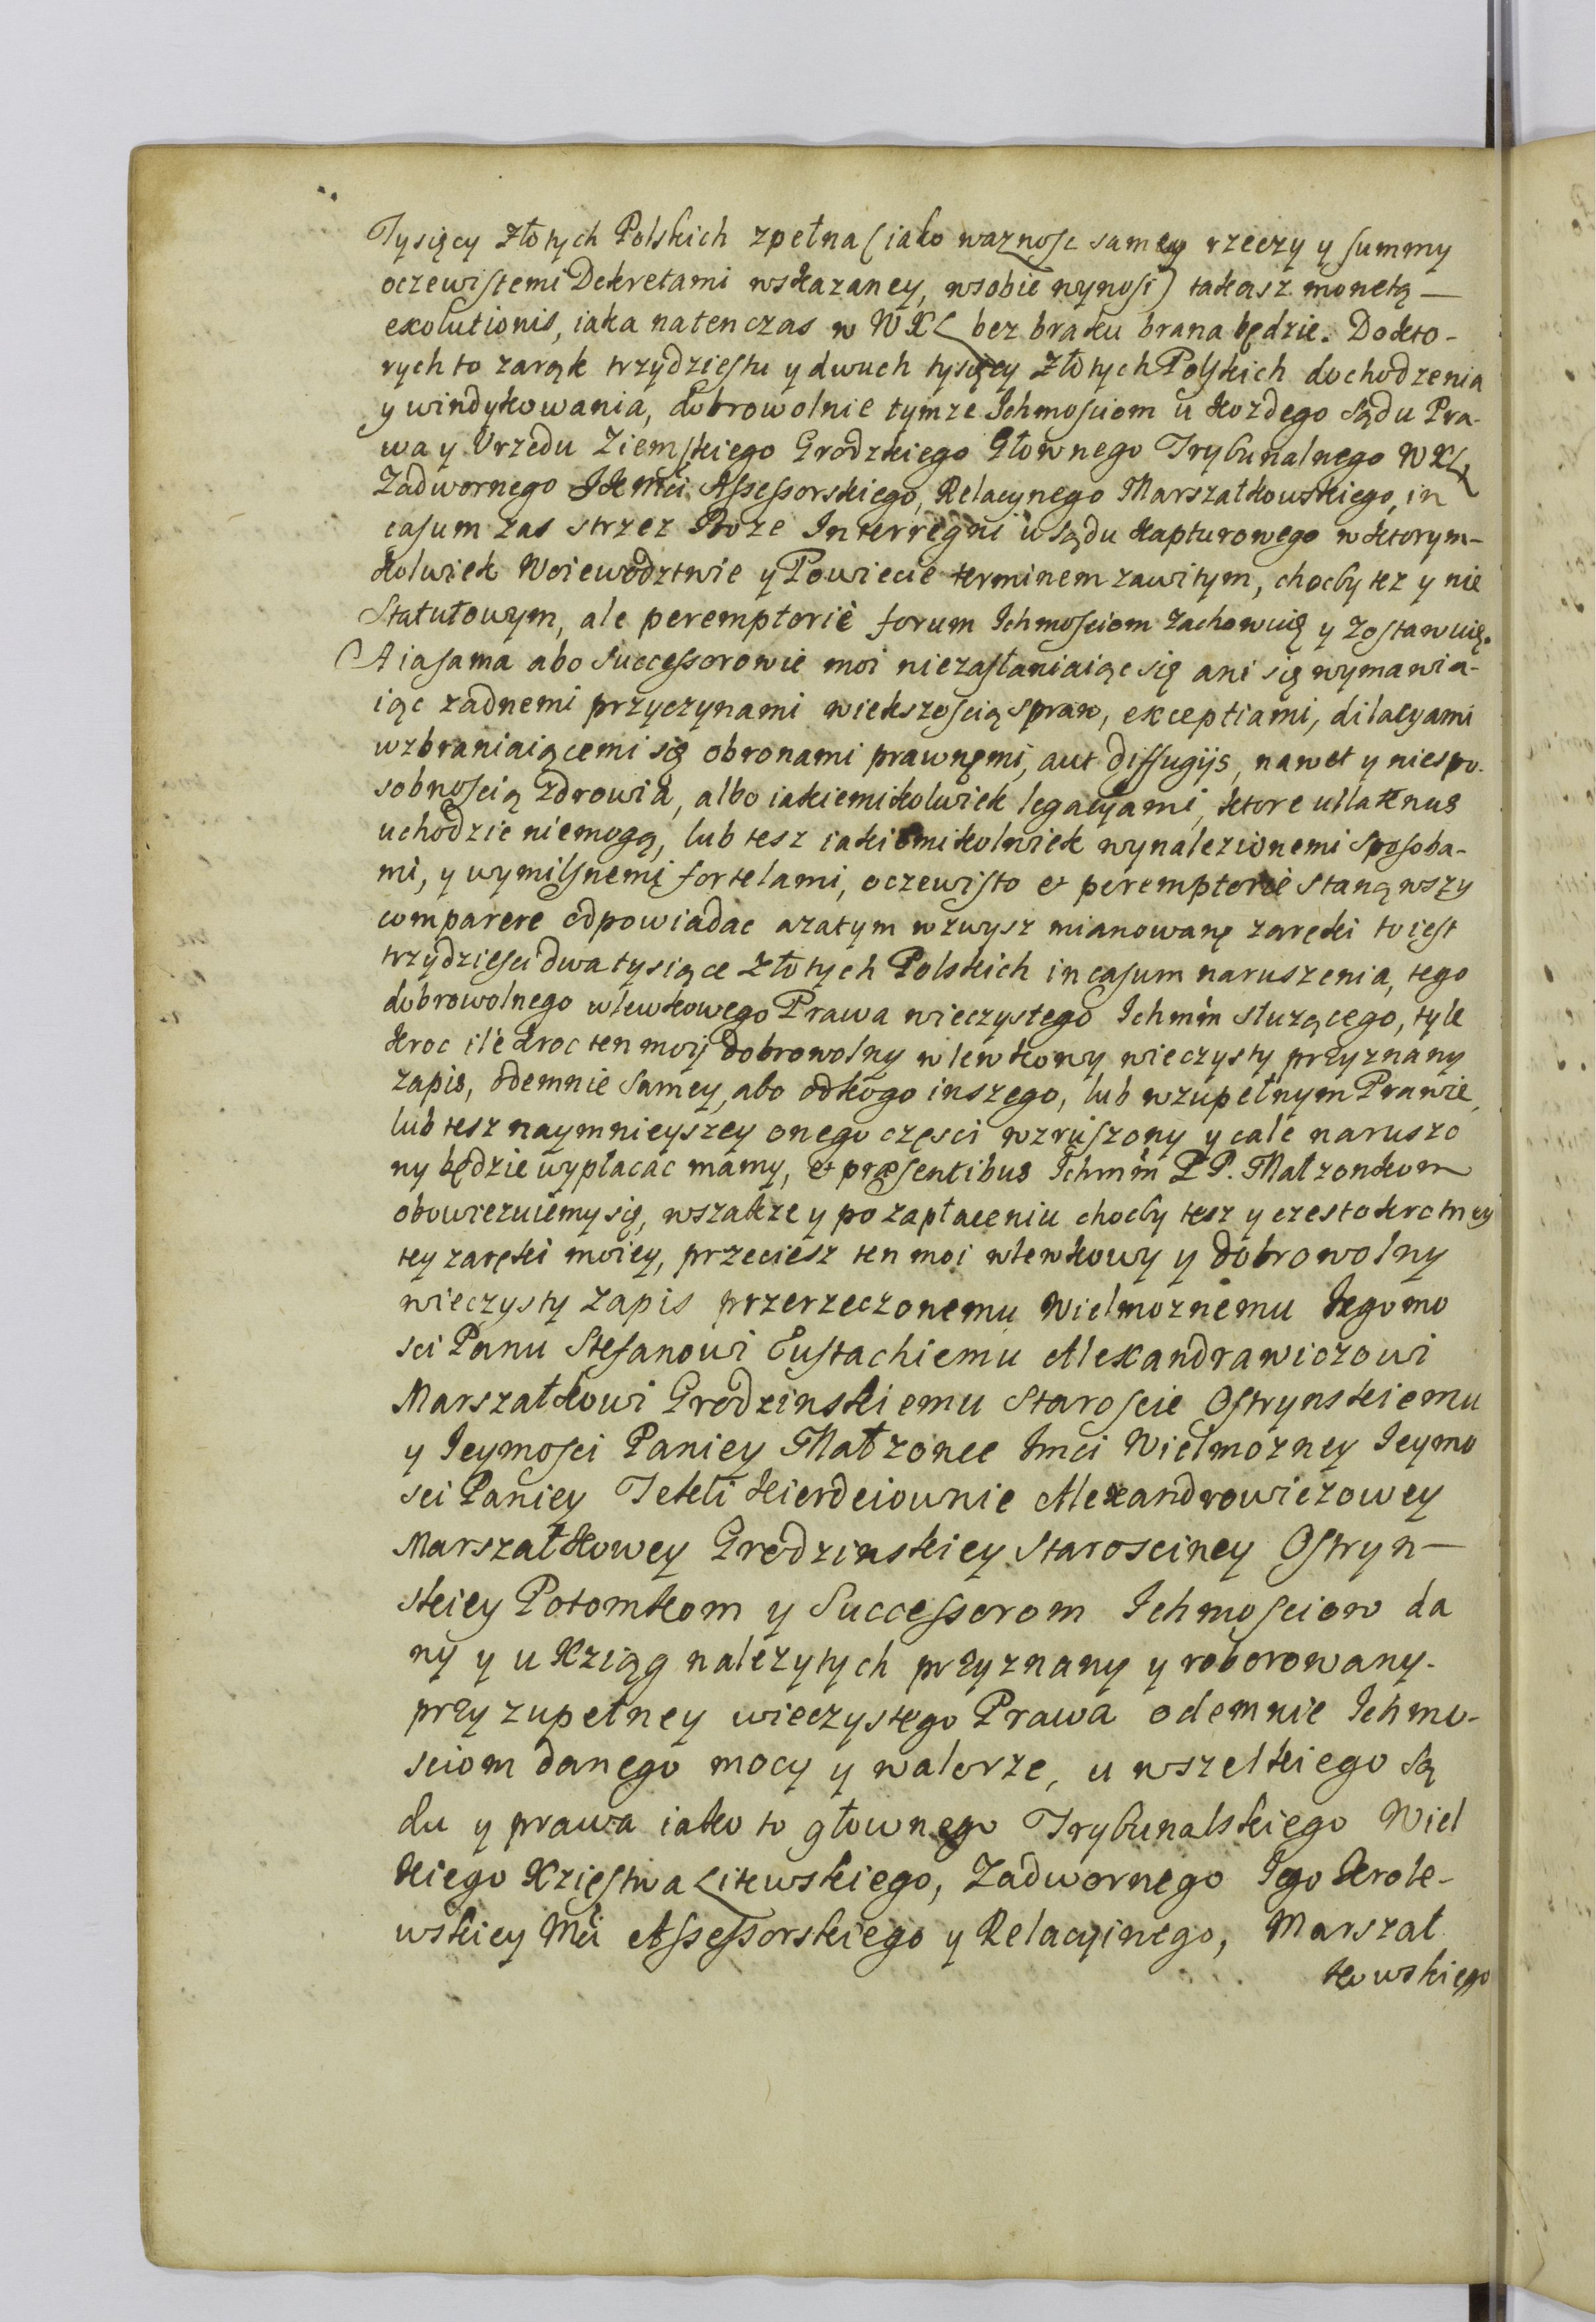 Tysięcy Złotych Polskich zpełna (iako waznosc samey rzeczy y summy
oczewistemi Dekretami wskazaney, wsobie wynosi) takasz monetą —
exolutionis, iaka naten czas w WXL bez braku brana będzie. Dokto-
rych to zarąk trzydziestu y dwuch tysięcy Złotych Polskich dochodzenia
y windykowania, dobrowolnie tymze Ichmosciom u kozdego Sądu Pra-
wa y Urzedu Ziemskiego Grodzkiego Głownego Trybunalnego WXL,
Zadwornego JKMści Assessorskiego, Relacynego Marszałkowskiego, in
casum zas strzez Boze Interregni u sądu kapturowego wktorym-
kolwiek Woiewodztwie y Powiecie terminem zawitym, chocby tez y nie
Statutowym, ale peremptoriè forum Ichmosciom Zachowuię y Zostawuię.
A iasama abo Successorowie moi niezasłaniaiąc się ani się wymawia-
iąc zadnemi przyczynami wiekszoscią spraw, exceptiami, dilacyami
wzbraniaiącemi się obronami prawnęmi, aut diffugijs, nawet y niespo-
sobnoscią zdrowia, albo iakiemikolwiek legacyami, ktore ullatenus
uchodzic niemogą, lub tesz iakiemikolwiek wynalezionemi sposoba-
mi, y wymilsnemi fortelami, oczewisto et peremptoriè stanąwszy
comparere odpowiadac azatym wzwysz mianowanę zaręki to iest
trzydziesci dwa tysiące Złotych Polskich in casum naruszenia, tego
dobrowolnego wlewkowego Prawa wieczystego Ichmm słuzącego, tyle
kroc ilekroc ten moij dobrowolny wlewkowy wieczysty przyznany
zapis, odemnie samey, abo odkogo inszego, lub wzupełnym Prawie,
lub tesz naymnieyszey onego częsci wzruszony y cale naruszo
ny będzie wypłacac mamy, et præsentibus Ichmm P P. Małzonkom
obowiezuiemy się, wszakze y po zapłaceniu chocby tesz y czestokrotney
tey zaręki moiey, przeciesz ten moi wlewkowy y dobrowolny
wieczysty zapis przerzeczonemu Wielmoznemu Jegomo
sci Panu Stefanowi Eustachiemu Alexandrawiczowi
Marszałkowi Grodzinskiemu Staroscie Ostrynskiemu
y Jeymosci Paniey Małzonce Jmci Wielmozney Jeymo
sci Paniey Tekli Kierdeiownie Alexandrowiczowey
Marszałkowey Grodzinskiey Starosciney Ostryn—
skiey Potomkom y Successorom Ichmosciow da
ny y u Xziąg nalezytych przyznany y roborowany.
przy zupełney wieczystego Prawa odemnie Ichmo-
sciom danego mocy y walorze, u wszelkiego Są
du y prawa iako to głownego Trybunalskiego Wiel
kiego Xzięstwa Litewskiego, Zadwornego Jego Krole-
wskiey Mci Assessorskiego y Relacyinego, Marszał
kowskiego